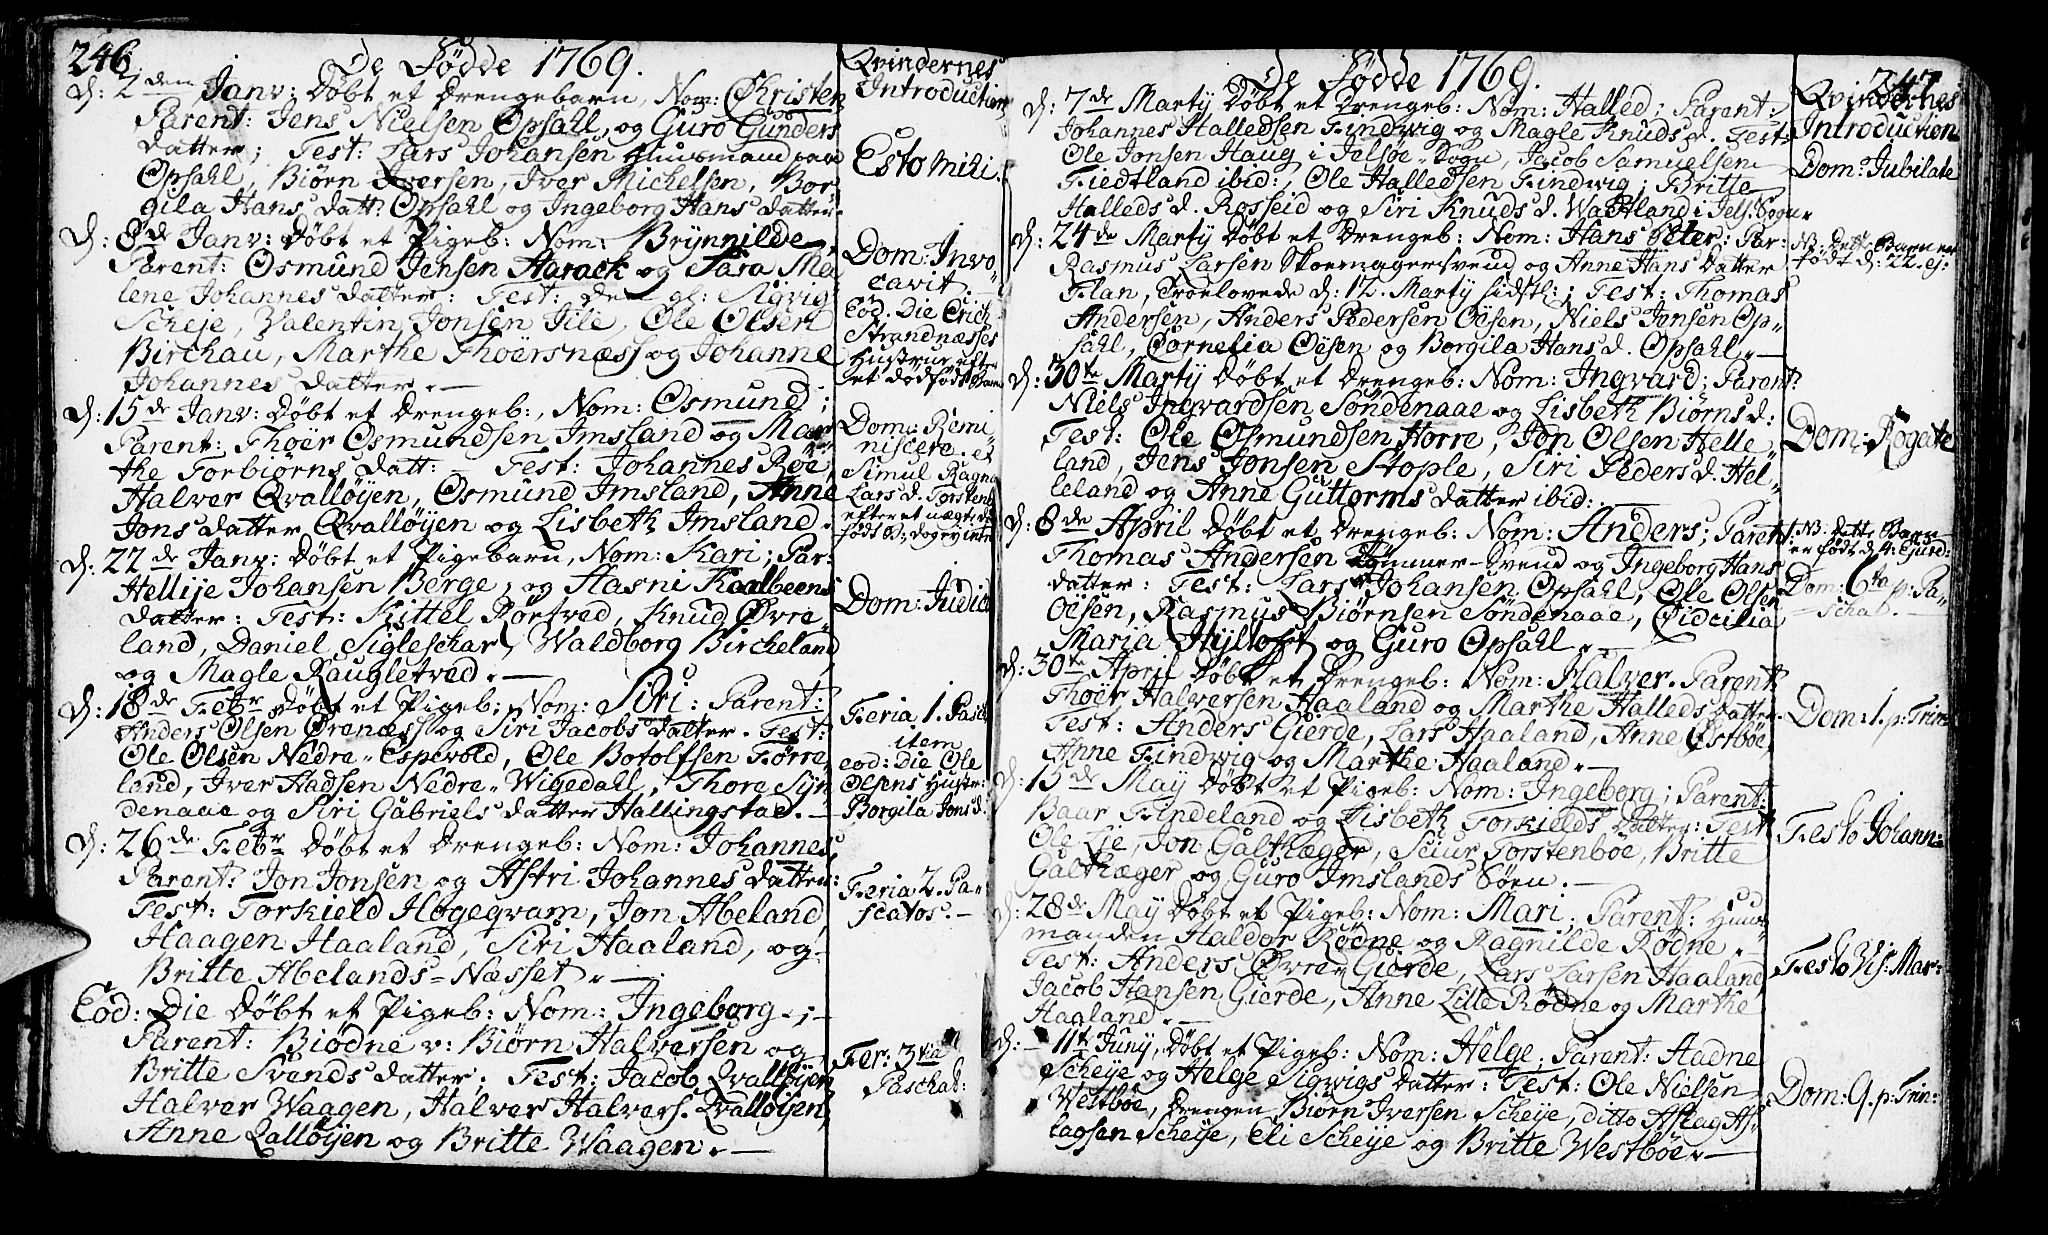 246.
De Fødde 1769.
d: 2den Janv: Døbt et Drengebarn, Nom: Christen
Parent: Jens Nielsen Opsahl, og Guro Gunders
datter; Test: Lars Johansen Huusmand paa
Opsahl, Biørn Iversen, Iver Michelsen, Bor-
gila Hans datt: Opsahl og Ingeborg Hans datter.
d: 8de Janv: Døbt et Pigeb: Nom: Brynnilde,
Parent: Osmund Jensen Aarack og Sara Ma
lene Johannes datter: Test: de gl: Sigvig
Scheje, Valentin Jonsen Jile, Ole Olsen
Birchau, Marthe Thoërsnæss og Johanne
Johannes datter. —
d: 15de Janv: Døbt et Drengeb:, Nom: Osmund;
Parent: Thoër Osmundsen Imsland og Mar
the Torbiørns datt: — Test: Johannes Röe,
Halver Qvalløyen, Osmund Imsland, Anne
Jons datter Qvalløyen og Lisbeth Imsland.
d: 22de Janv: Døbt et Pigebarn, Nom: Kari; Par:
Hellije Johansen Berge, og Hasni Kaalbeens
datter: Test: Kittel Rörtved, Knud Øvre
land, Daniel Sigleskar, Waldborg Bircheland
og Magle Raugletved. —
d: 18de Febr Døbt et Pigeb: Nom: Siri: Parent:
Anders Olsen Ørenæss og Siri Jacobs datter. Test:
Ole Olsen Nedre-Espevold, Ole Botolfsen Førre
land, Iver Aadsen Nedre-Wigedahl, Thore Syn
denaae og Siri Gabriels datter Hallingstad. —
d: 26de Febr Døbt et Drengeb: Nom: Johannes
Parent: Jon Jonsen og Astri Johannes datter:
Test: Torkield Høgeqvam, Jon Abeland,
Haagen Haaland, Siri Haaland, og
Britte Abelands-Næsset. —
Eod: Die Døbt et Pigeb: Nom: Ingeborg. ;-
Parent: Biødne v: Biørn Halversen og
Britte Svends datter. Test: Jacob Qvalløyen
Halver Waagen, Halver Halvers. Qvalløyen,
Anne Qalløyen og Britte Waagen. —
Qvindernes
Introduction
Esto Mihi.
Dom: Invo
cavit.
Eod. Die Erich
Strandnesses
Hustrue efter
et dødfødt Barn
Dom: Remi
niscere. et
Simul Ragna
Lars d. Torstenb
efter et
Dom: Judica
Feria 1. Pasch
item
eod: Die Ole
Olsens Hustr:
Borgila Jons d.
Feria 2. Pa-
scatos. —
Fer: 3tia
Paschat:
247
De Fødde 1769.
d: 7de Martij Døbt et Drengeb: Nom: Halled; Parent:
Johannes Halledsen Findvig og Magle Knuds d. Test:
Ole Jonsen Haug i Jelsøe-Sogn, Jacob Samuelsen
Fiedtland ibid:, Ole Halledsen Findwig; Britte
Halleds d. Rosseid og Siri Knuds d. Wadtland i Jels: Sogn
d: 24de Martij Døbt et Drengeb: Nom: Hans Peter: Par:
Rasmus Larsen Skoemagersvend og Anne Hans datter
Flan, Troelovede d: 12. Martij sidstl:; Test: Thomas
Andersen, Anders Pedersen Oësen, Niels Jonsen Op-
sahl, Cornelia Oësen og Borgila Hans d. Opsahl. —
d: 30te Martij Døbt et Drengeb: Nom: Ingvard; Parent:
Niels Ingvardsen Søndenaae og Lisbeth Biørns d:
Test: Ole Osmundsen Horre, Jon Olsen Helle
land, Jens Jonsen Stople, Siri Peders d. Hel-
leland og Anne Guttorms datter ibid:
d: 8de April Døbt et Drengeb: Nom: Anders; Parent:
Thomas Andersen Tømmer-Svend og Ingeborg Hans
datter: Test: Lars Johansen Opsahl, Ole Olsen
Oësen, Rasmus Biørnsen Søndenaae, Cidcilia
Maria Hyltoft og Guro Opsahl. —
d: 30te April Døbt et Drengeb: Nom: Halver. Parent:
Thoër Halversen Haaland og Marthe Halleds datter
Test: Anders Gierde, Lars Haaland, Anne Østbøe,
Anne Findwig og Marthe Haaland. —
d: 15de May Døbt et Pigeb: Nom: Ingeborg; Parent:
Baar Findeland og Lisbeth Torkields datter: Test:
Ole Lje, Jon Galthæger, Sciur Torstenbøe, Britte
Galthæger og Guro Imslands Søen. —
d: 28de May Døbt et Pigeb: Nom: Mari, Parent: Huus
manden Haldor Rødne og Ragnilde Rødne.
Test: Anders Øvre-Gierde, Lars Larsen Haaland,
Jacob Hansen Gierde, Anne Lille Rødne og Marthe
Haaland. —
d: 11te Juny, Døbt et Pigeb: Nom: Helge. Parent: Aadne
Scheije og Helge Sigwigs datter: Test: Ole Nielsen
Westbøe, Drengen Biørn Iversen Scheije, ditto Aslag As-
lagsen Scheije, Eli Scheije og Britte Westbøe. —
Qvindernes
Introduction
Dom: Jubilate
NB. dette Barn er
født d: 22. ej:
Dom: Rogate
NB. dette Barn
er født d. 4. Ejusd:
Dom: 6ta p: Pa-
schat. —
Dom: 1. p: Trin:
Festo Johann:
Festo Vis: Mar:
Dom: 9. p: Trin: